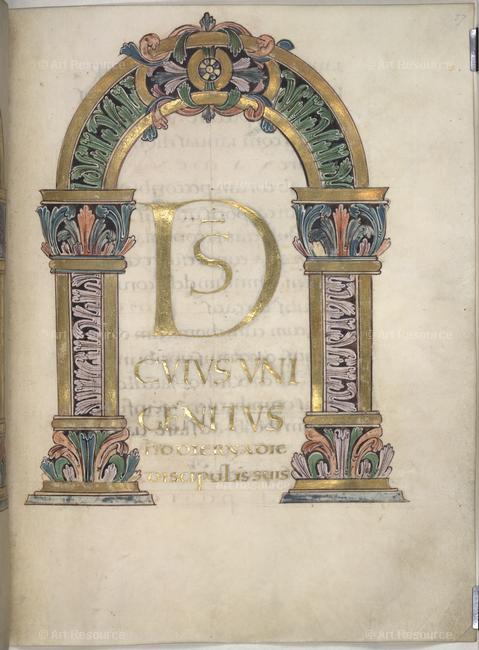 © Art Resource © Art Resource
DS̄
© Art Resource © Art Resource
CVIVS VNI
GENITVS
hODIERNA DIE
DISCIPULIS SUIS
© Art Resource © Art Resource